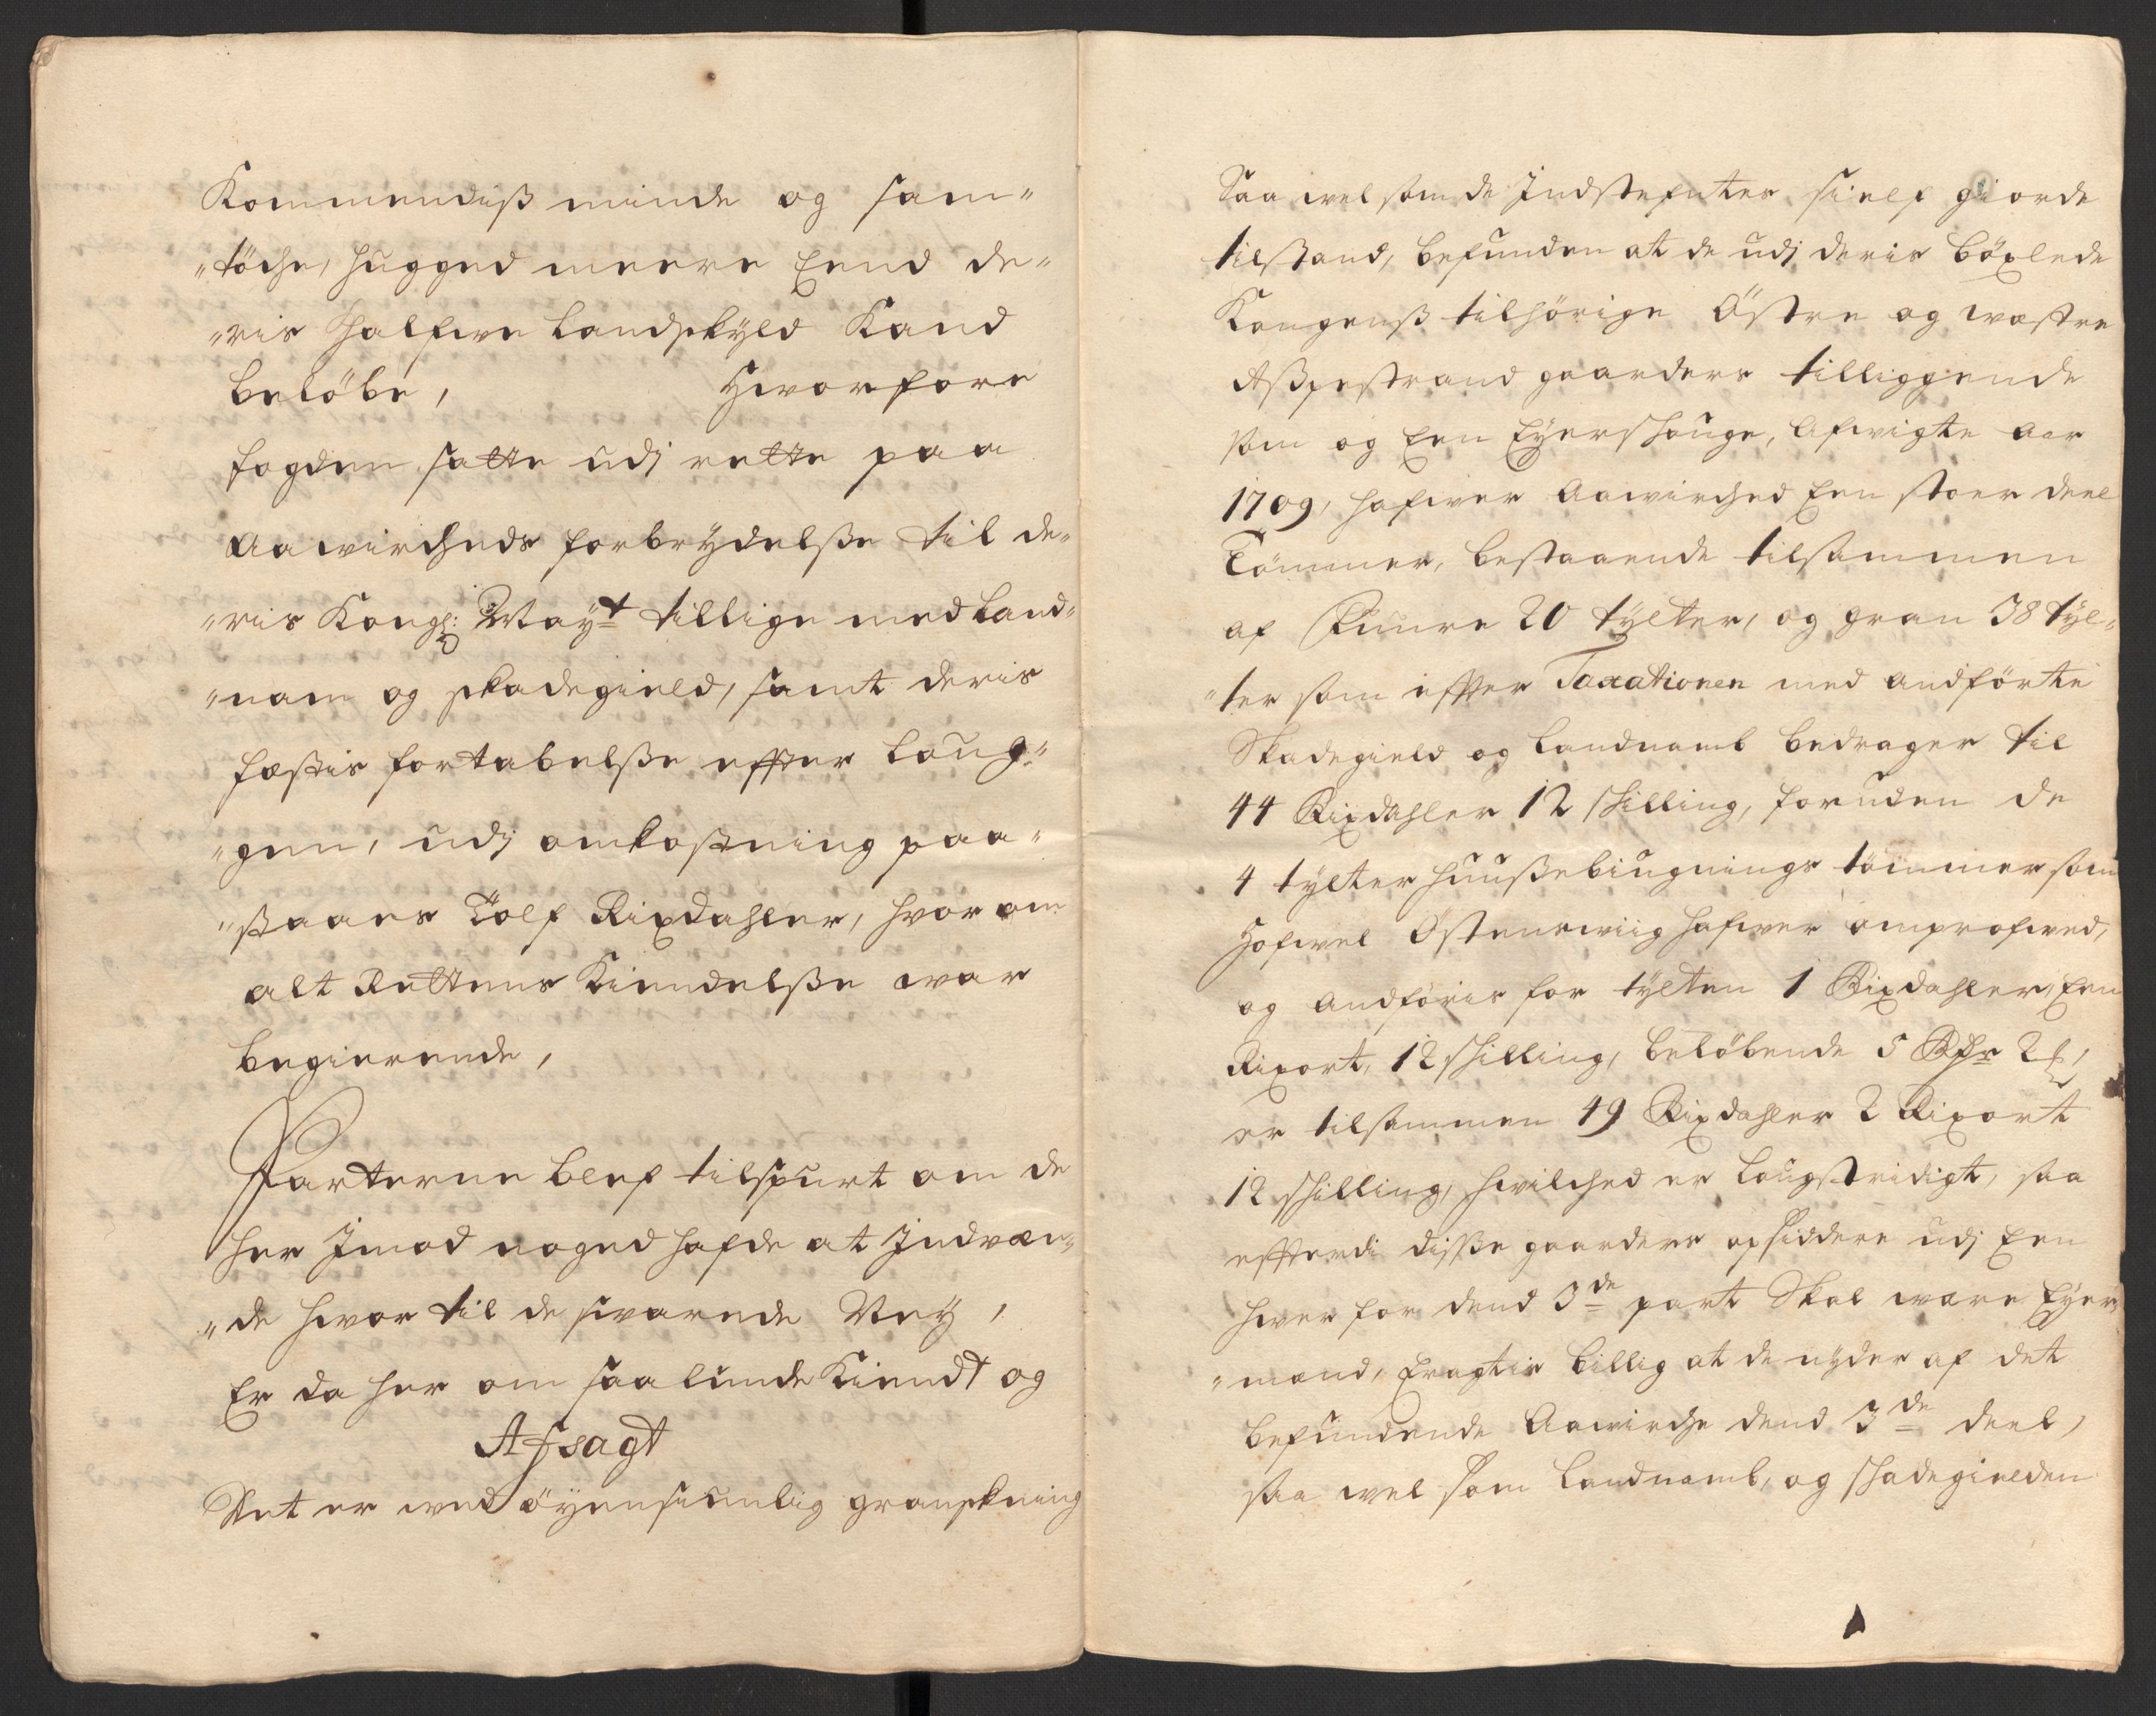 Kommendiß minde og sam„
„töche, hugged meere End de„
„ris Halfve Landskyld Kand
beløbe, Hvorfore
fogden satte udj rette paa
Aawircheds forbrydelße til de„
„ris Kongl: May.t tillige med Land„
„nam og skadegield, samt deris
fæstis fortabelße effter Loug„
„gen, udj omkostning paa„
„staaes Tolf Rixdahler, hvor om
alt Rettens Kiendelße var
begierende,
Parterne blef tilspurt om de
her Imod noged hafde at Indven„
„de hvor til de svarede Ney,
Er da her om saalunde Kiendt og
Afsagt
Det er ved öyensiunlig granskning
Saa vel som de Indstefnter sielf giorde
tilstand, befunden at de udj deris böxlede
Kongenß tilhörige Östre og westre
Aßpestrand gaarders tilliggende
som og Een Eyers houge, Afvigte Aar
1709, hafver Aawirched Een stoer deel
Tömmer, bestaaende tilsammen
af Fuure 20 tylter, og gran 38 tyl„
„ter som effter Taxationen med andförte
Skadegield og Landnamb bedrager til
44 Rixdahler 12 skilling, foruden de
4 tylter huußebiugnings tömmer som
Hofvel Östenswiig hafver omprofved,
og andföris for tylten 1 Rixdahler, Een
Rixort, 12 skilling, belöbende 5 Rdr 2 ß,
er tilsammen 49 Rixdahler 2 Rixort
12 skilling, hvilched er Lougstridigt, saa
effterdi disße gaarders opsiddere udj Een
hver for dend 3de part Skal være Eyer
„mænd, Eragtis billig at de nyder af det
befundende Aawirche dend 3de deel,
saa vel som Landnamb, og skadegielden